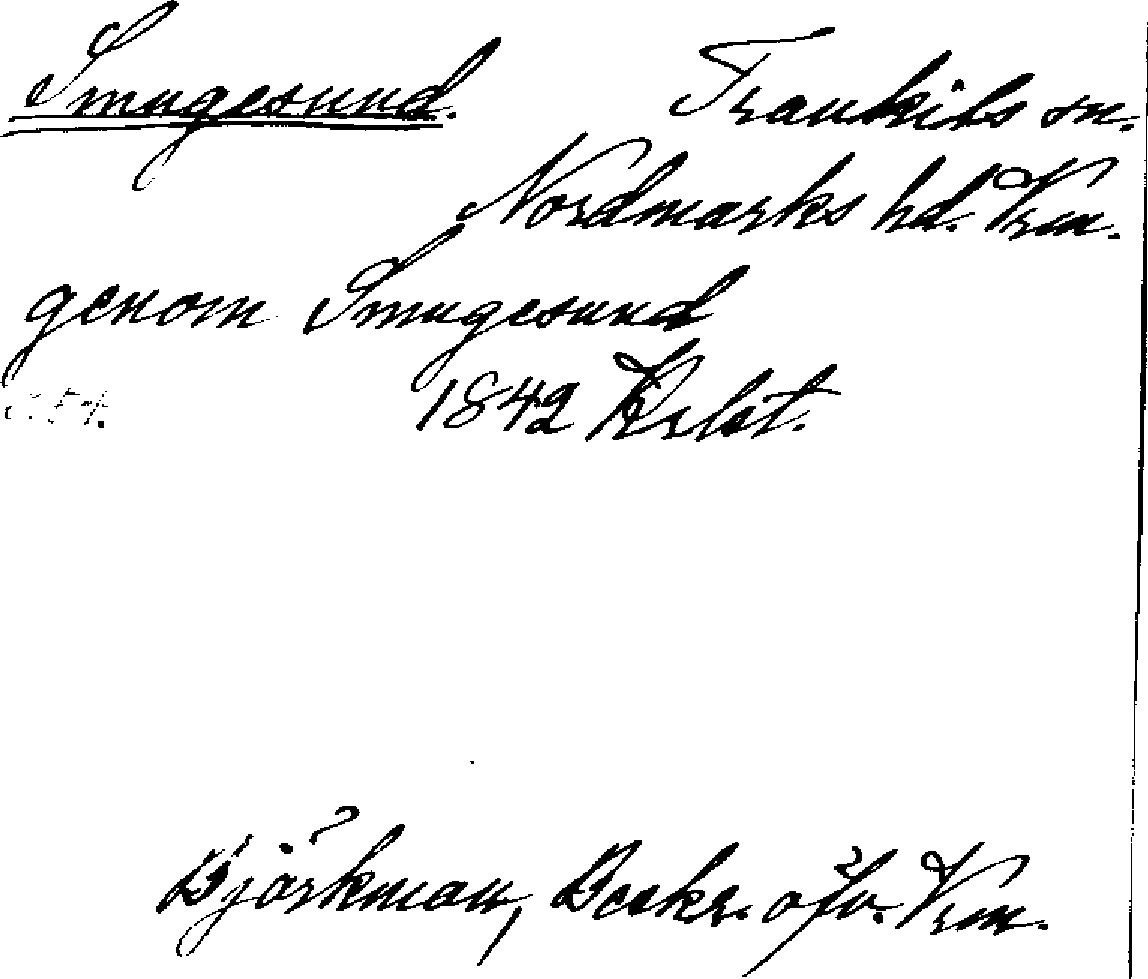 Smugesund. Trankils sn.
Nordmarks hd. Vrm.
genom Smugesund
1842 Krlst.
Björkman, Beskr. öfv. Vrm.